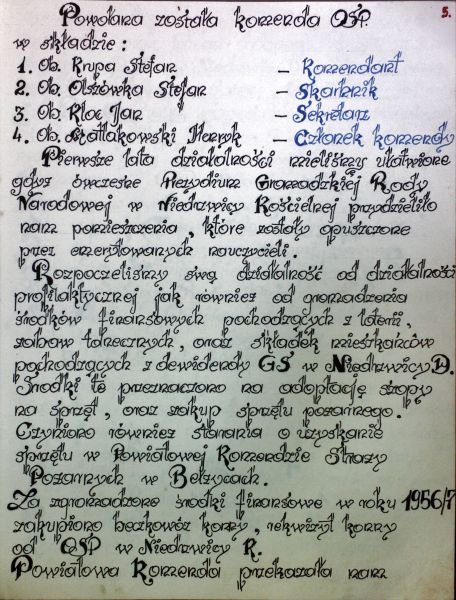 5.
Powołana została komenda OSP.
w składzie :
1. Ob. Krupa Stefan – Komendant
2. Ob. Olszówka Stefan – Skarbnik
3. Ob. Kloc Jan – Sekretarz
4. Ob. Szatłakowski Henryk – Członek komendy
Pierwsze lata działalności mieliśmy ułatwione
gdyż ówczesne Prezydium Gromadzkiej Rady
Narodowej w Niedrzwicy Kościelnej przydzieliło
nam pomieszczenia, które zostały opuszczone
przez emerytowanych nauczycieli.
Rozpoczeliśmy swą działalność od działalności
profilaktycznej jak również od gromadzenia
środków finansowych pochodzących z loterii,
zabaw tanecznych, oraz składek mieszkańców
pochodzących z dewidendy GS w Niedrzwicy D.
Środki te przeznaczono na adoptację szopy
na sprzęt, oraz zakup sprzętu pożarnego.
Czyniono również starania o uzyskanie
sprzętu w Powiatowej Komendzie Straży
Pożarnych w Bełżycach.
Za zgromadzone środki finansowe w roku 1956/7
zakupiono beczkowóz konny, rekwizyt konny
od OSP w Niedrzwicy K.
Powiatowa Komenda przekazała nam